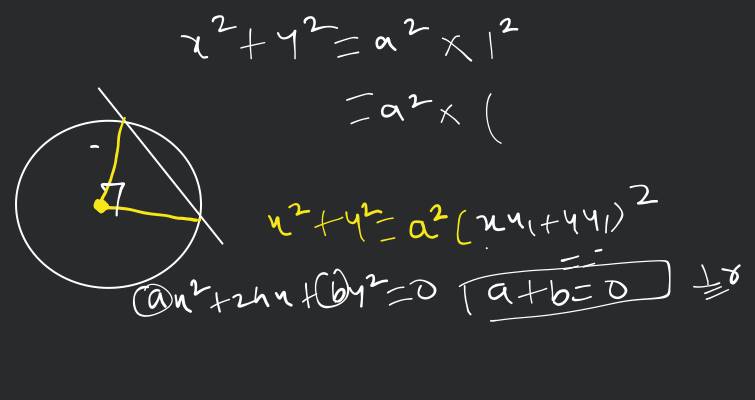 x² + y² = a² × 1²
= a² × (
x² + y² = a² (xx₁ + yy₁)²
ax² + 2hx + by² = 0 a + b = 0 ⊥r